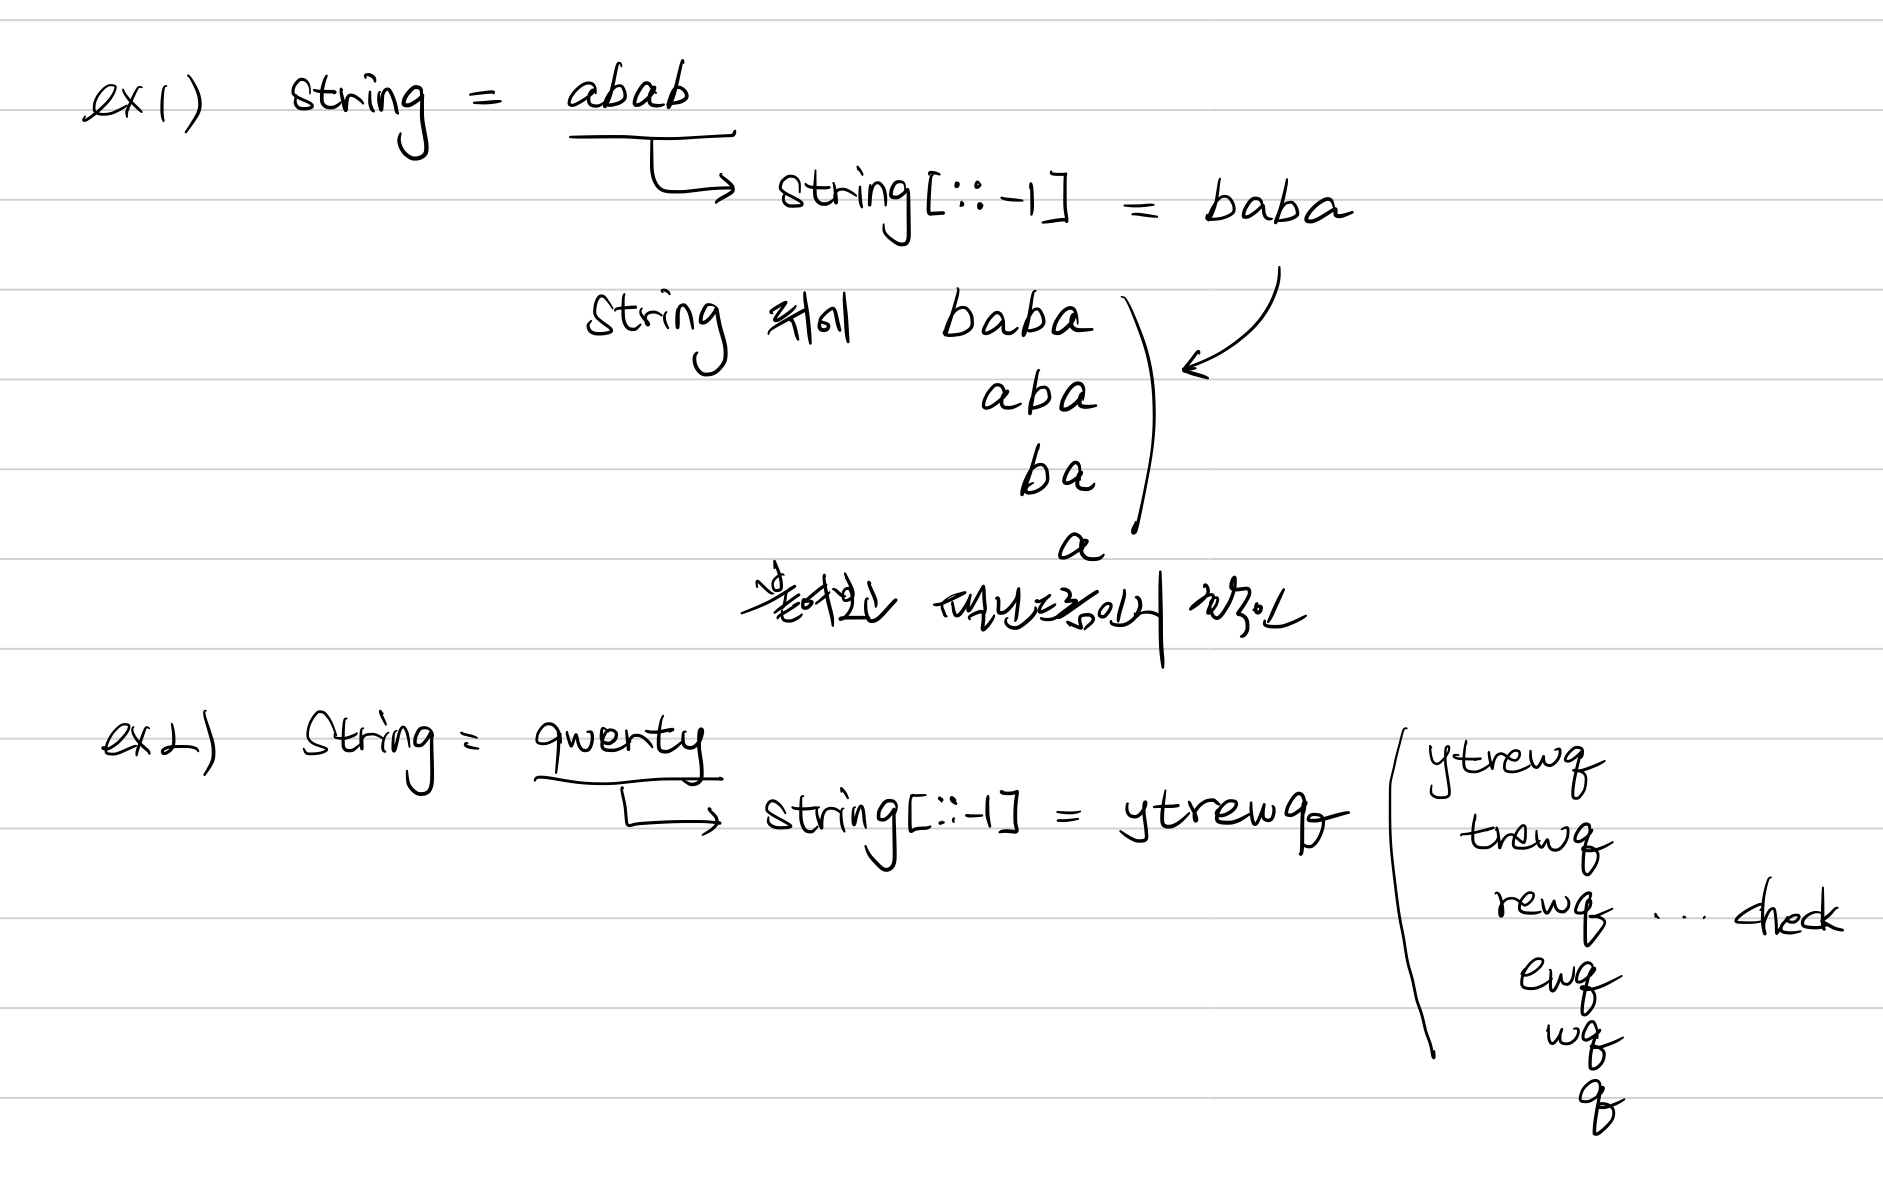 ex1) string = abab
string[::-1] = baba
string 뒤에 baba
aba
ba
a
붙여보고 팰린드롬인지 확인
ex2) string = qwerty
string[::-1] = ytrewq
ytrewq
trewq
rewq ... check
ewq
wq
q